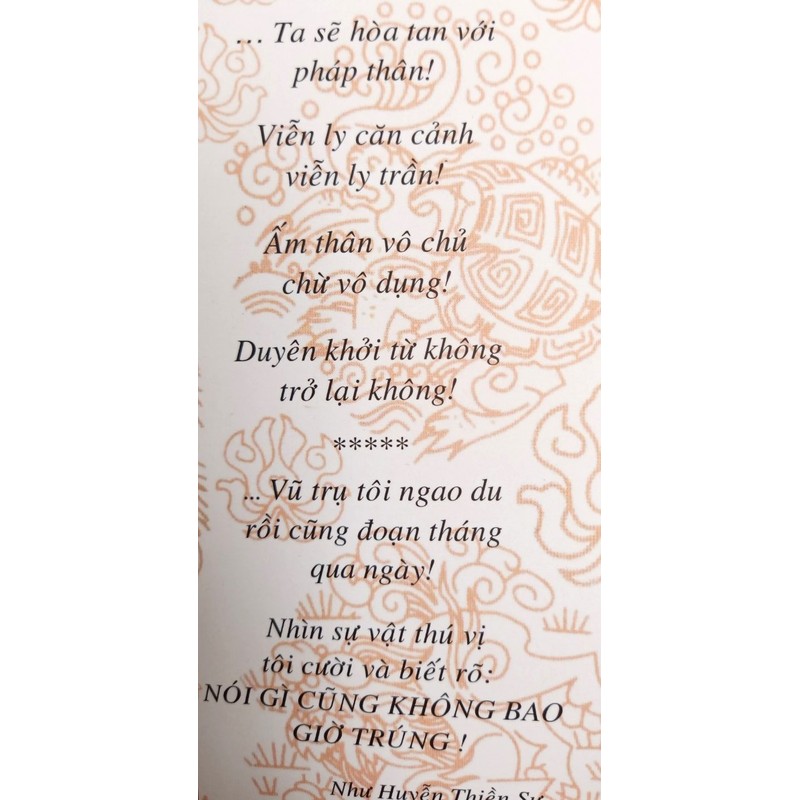 … Ta sẽ hòa tan với
pháp thân!
Viễn ly căn cảnh
viễn ly trần!
Ấm thân vô chủ
chừ vô dụng!
Duyên khởi từ không
trở lại không!
*****
... Vũ trụ tôi ngao du
rồi cũng đoạn tháng
qua ngày!
Nhìn sự vật thú vị
tôi cười và biết rõ:
NÓI GÌ CŨNG KHÔNG BAO
GIỜ TRÚNG !
Như Huyễn Thiền Sư